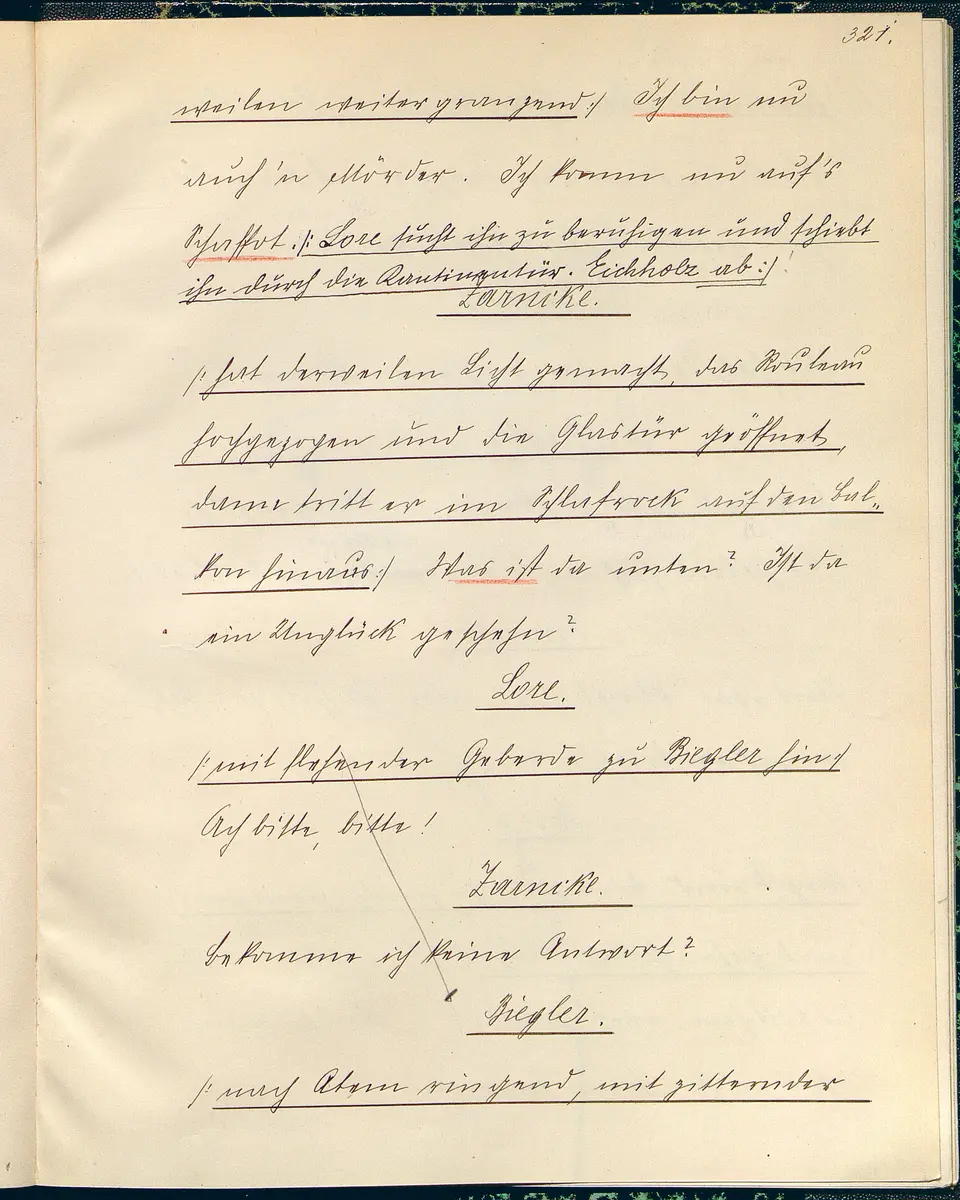 321.
weilen weitergranzend:/ Ich bin nu
auch'n Mörder. Ich komm nu auf's
Schaffot. /: Lore sucht ihn zu beruhigen und schiebt
ihn durch die Kantinentür. Eichholz ab:/
Zarnike.
/: hat derweilen Licht gemacht, das Rouleau
hochgezogen und die Glastür geöffnet,
dann tritt er im Schlafrock auf den Bal-
kon hinaus:/ Was ist da unten? Ist da
ein Unglück geschehn?
Lore.
/: mit flehender Geberde zu Biegler hin:/
Ach bitte, bitte!
Zarnike.
Bekomme ich keine Antwort?
Biegler.
/: nach Atem ringend, mit zitternder